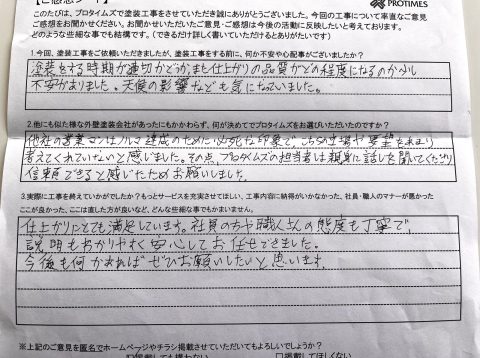 【ご感想シート】
PROTIMES
このたびは、プロタイムズで塗装工事をさせていただき誠にありがとうございました。今回の工事について率直なご意見
ご感想をお聞かせください。お聞かせいただいたご意見・ご感想は今後の活動に反映したいと考えております。
どのような些細な事でも結構です。(できるだけ詳しく書いていただけるとありがたいです)
1.今回、塗装工事をご依頼いただきましたが、塗装工事をする前に、何か不安や心配事がございましたか?
塗装をする時期が適切かどうか、また仕上がりの品質がどの程度になるのか少し
不安がありました。天候の影響なども気になっていました。
2.他にも似た様な外壁塗装会社があったにもかかわらず、何が決めてでプロタイムズをお選びいただいたのですか?
他社の営業マンはノルマ達成のために必死な印象で、こちらの立場や要望をあまり
考えてくれていないと感じました。その点、プロタイムズの担当者は親身に話しを聞いてくださり
信頼できると感じたためお願いしました。
3.実際に工事を終えていかがでしたか?もっとサービスを充実させてほしい、工事内容に納得がいかなかった、社員・職人のマナーが悪かった
ここが良かった、ここは直した方が良いなど、どんな些細な事でもかまいません。
仕上がりにとても満足しています。社員の方や職人さんの態度も丁寧で、
説明もわかりやすく安心してお任せできました。
今後も何かあればぜひお願いしたいと思います。
※上記のご意見を匿名でホームページやチラシ掲載させていただいてもよろしいでしょうか?
□掲載しても構わない □掲載してほしくない